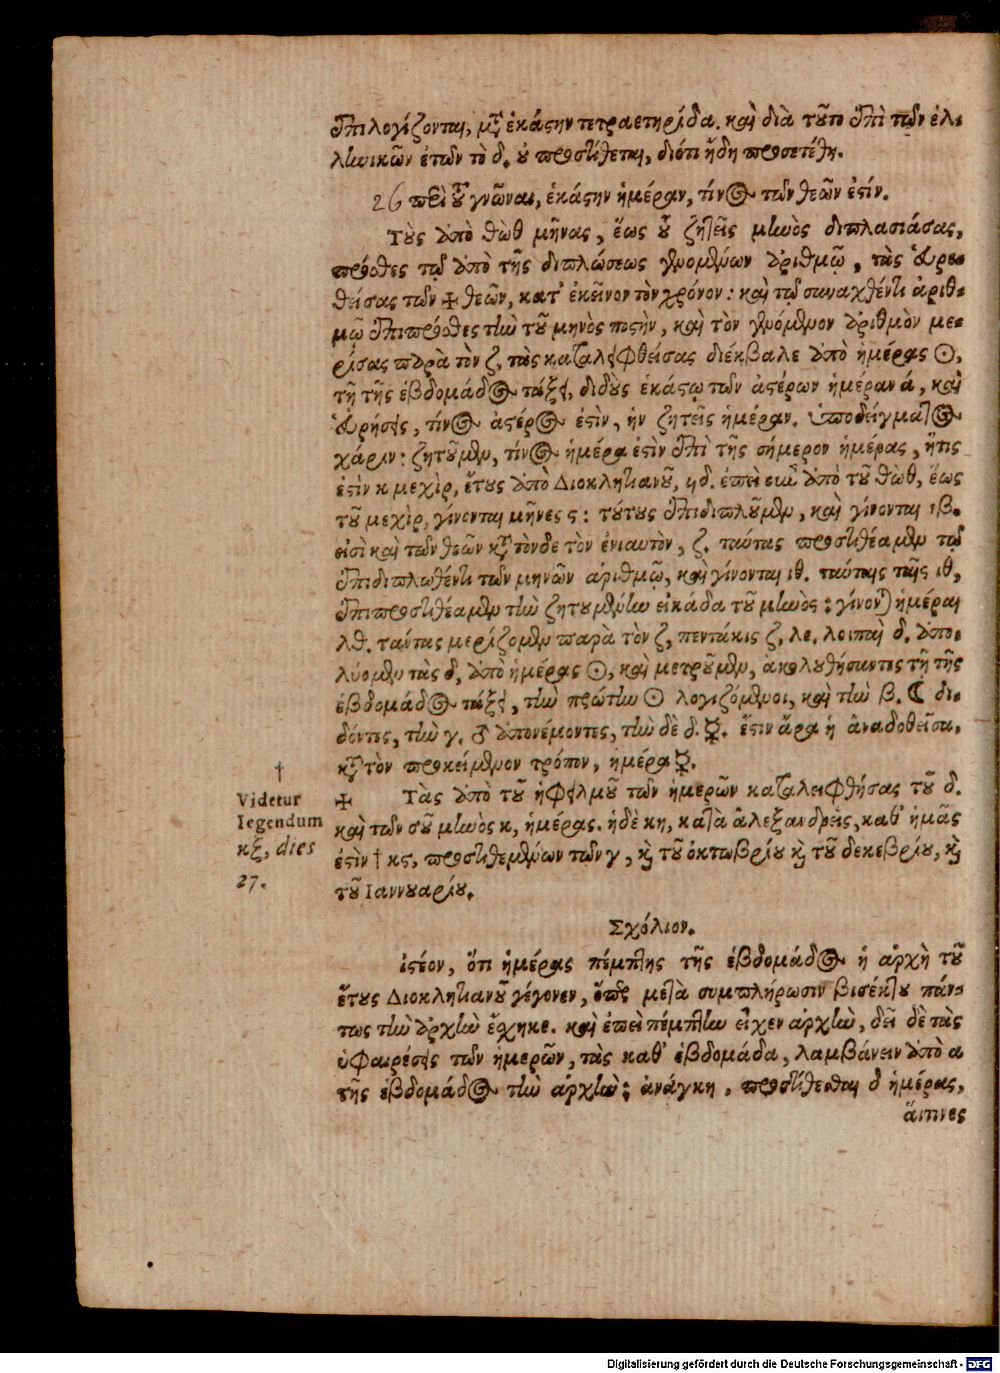 ἐπιλογίζονται, μετὰ ἑκάστην τετραετηρίδα. καὶ διὰ τοῦτο ἐπὶ τῶν ἑλ-
ληνικῶν ἐτῶν τὸ δ. οὐ προστίθεται, διότι ἤδη προσετέθη.
26 περὶ τοῦ γνῶναι, ἑκάστην ἡμέραν, τίνος τῶν θεῶν ἐστίν.
Τοὺς ἀπὸ θὼθ μῆνας, ἕως οὗ ζητεῖς μηνὸς διπλασιάσας,
πρόσθες τῷ ἀπὸ τῆς διπλώσεως γενομένων ἀριθμῷ, τὰς εὑρε-
θείσας τῶν ✠ θεῶν, κατ' ἐκεῖνον τὸν χρόνον: καὶ τῷ συναχθέντι ἀριθ-
μῷ ἐπιπρόσθες τὴν τοῦ μηνὸς ποστὴν, καὶ τὸν γενόμενον ἀριθμὸν με-
ρίσας παρὰ τὸν ζ, τὰς καταλειφθείσας διέκβαλε ἀπὸ ἡμέρας ☉,
τῇ τῆς ἑβδομάδος τάξει, διδοὺς ἑκάστῳ τῶν ἀστέρων ἡμέραν ά, καὶ
εὑρήσεις, τίνος ἀστέρος ἐστὶν, ἣν ζητεῖς ἡμέραν. ὑποδείγματος
χάριν: ζητοῦμεν, τίνος ἡμέρα ἐστὶν ἐπὶ τῆς σήμερον ἡμέρας, ἥτις
ἐστὶν κ μεχὶρ, ἔτους ἀπὸ Διοκλητιανοῦ, ϟδ. ἐπεὶ οὖν ἀπὸ τοῦ θὼθ, ἕως
τοῦ μεχὶρ, γίνονται μῆνες ς: τούτους ἐπιδιπλοῦμεν, καὶ γίνονται ιβ.
εἰσὶ καὶ τῶν θεῶν κατὰ τόνδε τὸν ἐνιαυτὸν, ζ. ταύτας προστιθέαμεν τῷ
ἐπιδιπλωθέντι τῶν μηνῶν ἀριθμῷ, καὶ γίνονται ιθ. ταύταις ταῖς ιθ,
ἐπιπροστιθέαμεν τὴν ζητουμένην εἰκάδα τοῦ μηνὸς: γίνονται ἡμέραι
λθ. ταύτας μερίζομεν παρὰ τὸν ζ, πεντάκις ζ, λε. λοιπαὶ δ. ἀπο-
λύομεν τὰς δ, ἀπὸ ἡμέρας ☉, καὶ μετροῦμεν, ἀκολουθήσαντες τῇ τῆς
ἑβδομάδος τάξει, τὴν πρώτην ☉ λογιζόμενοι, καὶ τὴν β. ☾ δι-
δόντες, τὴν γ. ♂ ἀπονέμοντες, τὴν δὲ δ. ☿. ἔστιν ἄρα ἡ ἀναδοθεῖσα,
κατὰ τὸν προκείμενον τρόπον, ἡμέρα ☿.
✠ Τὰς ἀπὸ τοῦ ὑφειλμοῦ τῶν ἡμερῶν καταλειφθήσας τοῦ δ.
καὶ τῶν σοῦ μηνὸς κ, ἡμέρας. ἡ δὲ κη, κατὰ ἀλεξανδρεῖς, καθ' ἡμᾶς
ἐστὶν † κς, προστιθεμένων τῶν γ, καὶ τοῦ ὀκτωβρίου καὶ τοῦ δεκεβρίου, καὶ
τοῦ Ιαννουαρίου.
†
Videtur
legendum
κζ, dies
27.
Σχόλιον.
ἰστέον, ὅτι ἡμέρας πέμπτης τῆς ἑβδομάδος ἡ ἀρχὴ τοῦ
ἔτους Διοκλητιανοῦ γέγονεν, ὅπερ μετὰ συμπλήρωσιν βισέκτου πάν-
τως τὴν ἀρχὴν ἔσχηκε. καὶ ἐπεὶ πέμπτην εἶχεν ἀρχὴν, δεῖ δὲ τὰς
ὑφαιρέσεις τῶν ἡμερῶν, τὰς καθ' ἑβδομάδα, λαμβάνειν ἀπὸ α
τῆς ἑβδομάδος τὴν ἀρχὴν: ἀνάγκη, προστίθεσθαι δ ἡμέρας,
ἅτινες
Digitalisierung gefördert durch die Deutsche Forschungsgemeinschaft - DFG